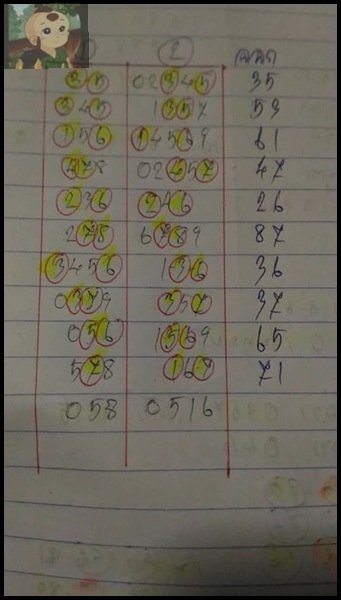 1 2 ออก
245 02345 35
345 1357 53
156 14569 61
378 02457 47
236 246 26
278 6789 87
3456 136 36
0379 357 37
056 1569 65
578 167 71
058 0516